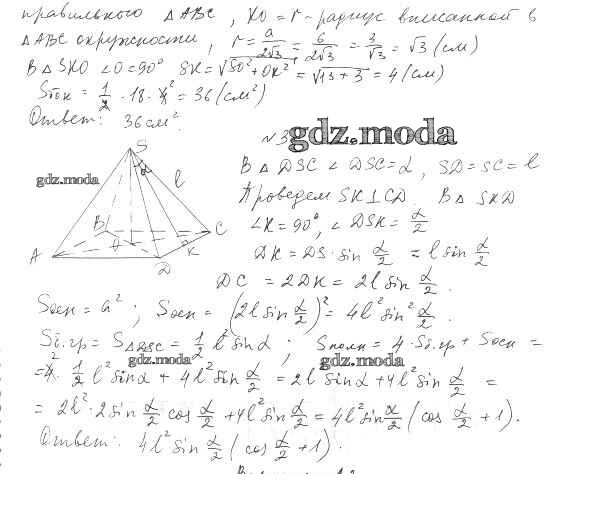 правильного △ABC, KO = r – радиус вписанной в
△ABC окружности, r = a/2√3 = 6/2√3 = 3/√3 = √3 (см)
В △SKO ∠O = 90° SK = √SO² + OK² = √13 + 3 = 4 (см)
Sбок = 1/2 · 18 · 4 = 36 (см²)
Ответ: 36 см².
№3
gdz.moda
В △DSC ∠DSC = α, SD = SC = l
Проведем SK⊥CD. В △SKD
∠K = 90°, ∠DSK = α/2
DK = DS · sin α/2 = l sin α/2
DC = 2DK = 2l sin α/2.
gdz.moda
S
α
l
B
C
K
A
D
Sосн = a²; Sосн = (2l sin α/2)² = 4l² sin² α/2.
Sб.гр = S△DSC = 1/2 l² sin α; Sполн = 4·Sб.гр + Sосн =
gdz.moda
gdz.moda
= 4 · 1/2 l² sin α + 4l² sin α/2 = 2l sin α + 4l² sin α/2 =
= 2l² · 2 sin α/2 cos α/2 + 4l² sin α/2 = 4l² sin α/2 (cos α/2 + 1).
Ответ: 4l² sin α/2 (cos α/2 + 1).